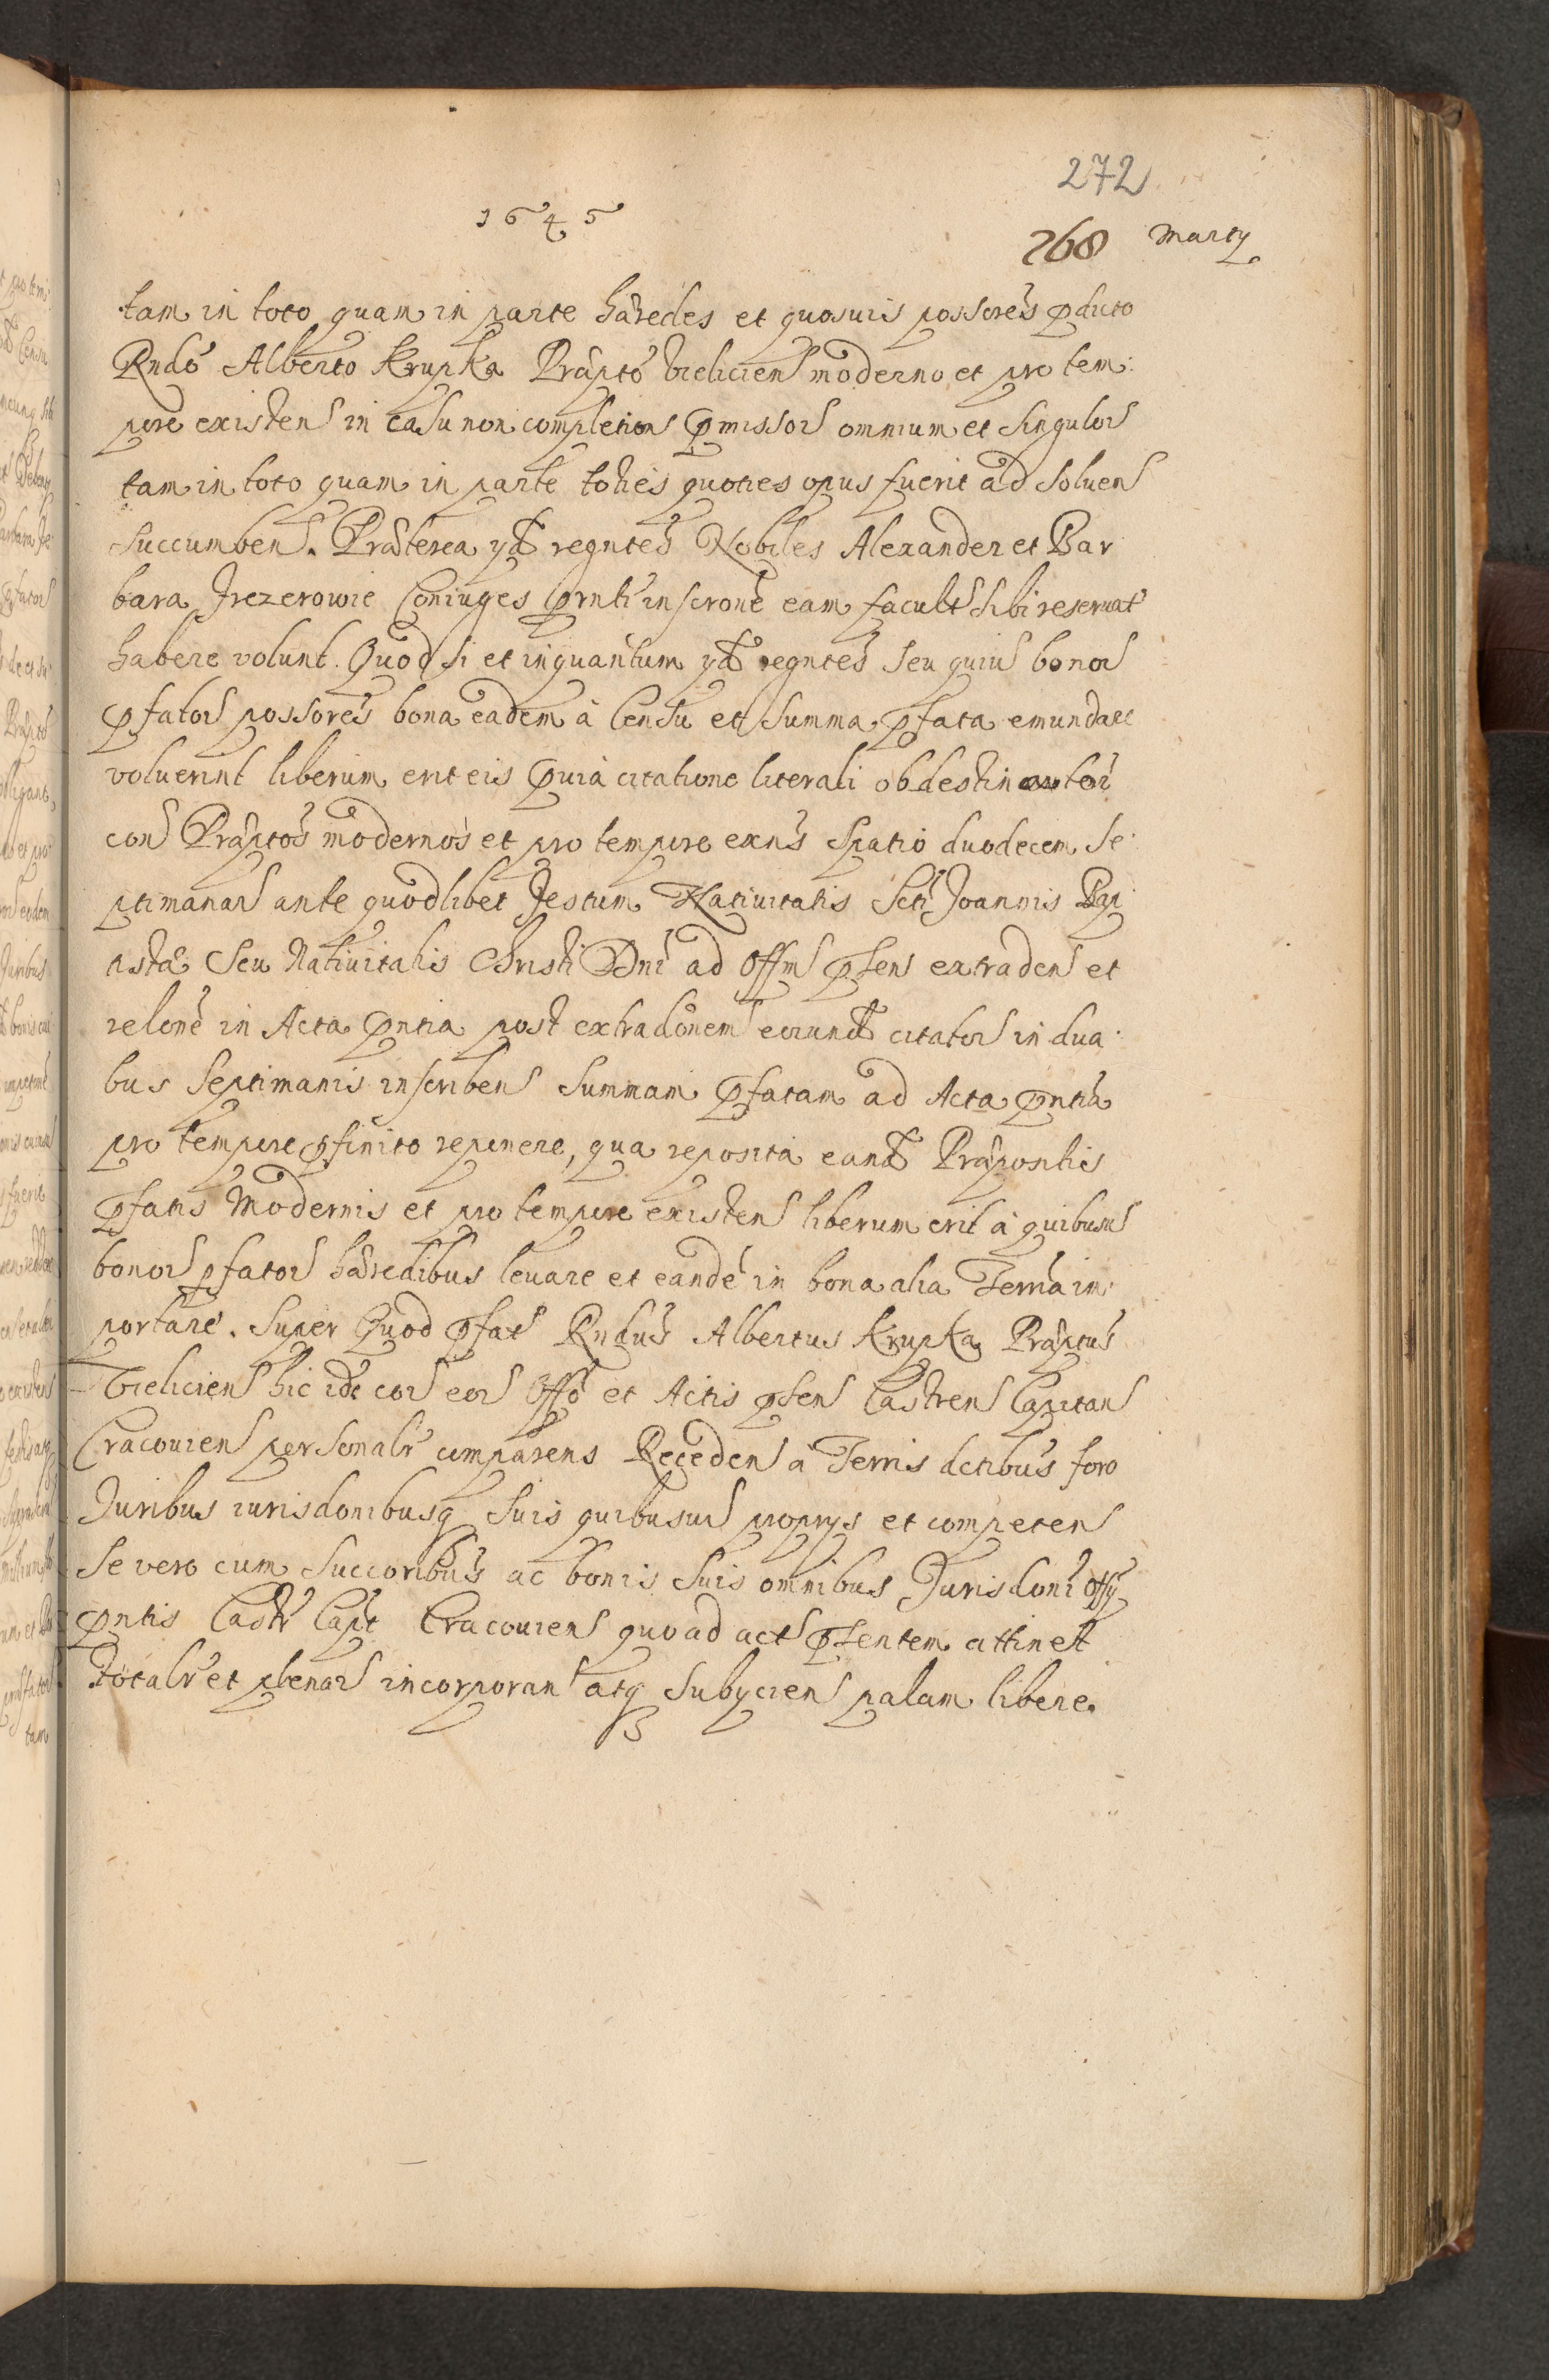 272
1645
268 Marty
tam in toto quam in parte haredes et quosuis possores pdicto
Rndo Alberto Krupka Prapto Bielicien moderno et pro tem:
pore existen in casu non completion pmissor omnium et singulor
tam in toto quam in parte toties quoties opus fuerit ad soluen
succumben. Praterea yd regntes Nobiles Alexander et Bar
bara Jrezerowie Coniuges prnti inscrone eam facult sibi reseruat
habere volunt. Quod si et inquantum yd regntes seu quius bonor
pfator possores bona eadem a Censu et summa pfata emundare
voluerint liberum erit eis quia citatione literali obdestin
con Praptos modernos et pro tempore exns spatio duodecem Se
ptimanar ante quodlibet Festum Natiuitatis Scti Joannis Bap
tista Seu Natiuitatis Christi Dni ad Offm psens extraden et
relone in Acta pntia post extradonem eorund citator in dua
bus Septimanis inscriben summam pfatam ad Acta pntia
pro tempore pfinito reponere, qua reposita eand Prapositis
pfatis Modernis et pro tempore existen liberum erit a quibusuis
bonor pfator haredibus leuare et eande in bona alia Terra im
portare. Super Quod pfat Rndus Albertus Krupka Praptus
Bielicien hic ide cor eor Offo et Actis psen Castren Capitan
Cracouien personalr comparens Receden a Terris detibus foro
Juribus iurisdonibusq suis quibusuis proprys et competen
Se vero cum Succoribus ac bonis suis omnibus Jurisdoni Offy
pntis Castr Capt Cracouien quoad act psentem attinet
totalr et plenar incorporan atq subycien palam libere.